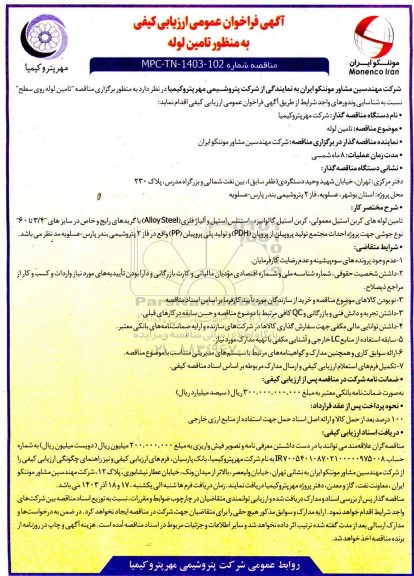 آگهی فراخوان عمومی ارزیابی کیفی
به منظور تامین لوله
مهرپتروکیمیا
موننکو ایران
Monenco Iran
مناقصه شماره MPC-TN-1403-102
شرکت مهندسین مشاور موننکو ایران به نمایندگی از شرکت پتروشیمی مهرپتروکیمیا در نظر دارد به منظور برگزاری مناقصه "تامین لوله روی سطح"
نسبت به شناسایی وندورهای واجد شرایط از طریق آگهی فراخوان عمومی ارزیابی کیفی اقدام نماید:
• نام دستگاه مناقصه گذار: شرکت مهرپتروکیمیا
• موضوع مناقصه: تامین لوله
• نماینده مناقصه گذار در برگزاری مناقصه: شرکت مهندسین مشاور موننکو ایران
• مدت زمان عملیات: ۸ ماه شمسی
• نشانی دستگاه مناقصه گذار:
دفتر مرکزی: تهران، خیابان شهید وحید دستگردی (ظفر سابق)، بین نفت شمالی و بزرگراه مدرس، پلاک ۲۳۰
محل پروژه: استان بوشهر، عسلویه، فاز ۲ پتروشیمی بندر پارس-عسلویه
• شرح مختصر کار:
تامین لوله های کربن استیل معمولی، کربن استیل گالوانیزه، استنلس استیل و آلیاژ فلزی (Alloy Steel) با گریدهای رایج و خاص در سایز های "۳/۴ تا "۶۰
نوع جوشی جهت پروژه احداث مجتمع تولید پروپیلن از پروپان (PDH) و تولید پلی پروپیلن (PP) واقع در فاز ۲ پتروشیمی بندر پارس-عسلویه مد نظر می باشد.
• شرایط متقاضی:
۱-عدم وجود پرونده های سوءپیشینه و عدم رضایت کارفرمایان.
۲-داشتن شخصیت حقوقی، شماره شناسه ملی و شماره اقتصادی مؤدیان مالیاتی و کارت بازرگانی و دارا بودن تأییدیه های مورد نیاز واردات و کسب و کار از
مراجع ذیصلاح.
۳-بومی بودن کالاهای موضوع مناقصه و خرید از سازندگان مورد تأیید کارفرما بر اساس اسناد مناقصه.
۳-داشتن تجربه و دانش فنی و بازرگانی و QC کافی مرتبط با موضوع مناقصه و حسن سابقه در کارهای قبلی.
۴-داشتن توانایی مالی مکفی جهت سفارش گذاری کالاها در شرکت های سازنده و ارایه ضمانت نامه های بانکی معتبر.
۵-سابقه استفاده از منابع LC خارجی و آشنایی مکفی با تهیه مدارک مورد نیاز.
۶-ارائه سوابق کاری و همچنین مدارک و گواهینامه های مرتبط با سیستم های مدیریتی متناسب با موضوع مناقصه.
۷-تکمیل فرم های استعلام ارزیابی کیفی و ارسال مدارک مربوطه بر اساس اسناد مناقصه کیفی.
• ضمانت نامه شرکت در مناقصه پس از ارزیابی کیفی:
به صورت ضمانت نامه بانکی معتبر به مبلغ ۳۰۰,۰۰۰,۰۰۰,۰۰۰ ریال (سیصد میلیارد ریال)
• نحوه پرداخت پس از عقد قرارداد:
۱۰۰ درصد بعد از حمل کالا و ارائه اصل اسناد حمل جهت استفاده از منابع ارزی خارجی
• دریافت اسناد ارزیابی کیفی:
مناقصه گران علاقه مند، می توانند با در دست داشتن معرفی نامه و تصویر فیش واریزی به مبلغ ۲۰۰,۰۰۰,۰۰۰ میلیون ریال (دویست میلیون ریال) به شماره
نام شرکت مهرپتروکیمیا، بانک پارسیان، فرم های ارزیابی کیفی و نیز راهنمای چگونگی ارزیابی کیفی را
از شرکت مهندسین مشاور موننکو ایران به نشانی تهران، خیابان ولیعصر، بالاتر از میدان ونک، خیابان عطار نیشابوری، پلاک ۱۲، شرکت مهندسین مشاور موننکو
ایران، معاونت نفت، گاز و معدن، دفتر پروژه مهرپتروکیمیا دریافت نمایند. زمان دریافت فرم ها شنبه الی یکشنبه ۱۷ و ۱۸ آذر ۱۴۰۳ می باشد.
مناقصه گذار پس از بررسی اسناد و مدارک دریافت شده و ارزیابی توانمندی متقاضیان در چارچوب ضوابط و مقررات، نسبت به توزیع اسناد مناقصه بین شرکت های
واجد شرایط اقدام خواهد نمود. ارایه مدارک و سوابق مذکور هیچ حقی را برای متقاضیان جهت شرکت در مناقصه ایجاد نخواهد کرد. در ضمن به درخواست ها و
مدارک ارسالی بعد از مدت گفته شده ترتیب اثر داده نخواهد شد و سایر اطلاعات و جزئیات مربوط در اسناد مناقصه آمده است. هزینه آگهی و چاپ در روزنامه از
برنده مناقصه اخذ خواهد شد.
روابط عمومی شرکت پتروشیمی مهرپتروکیمیا